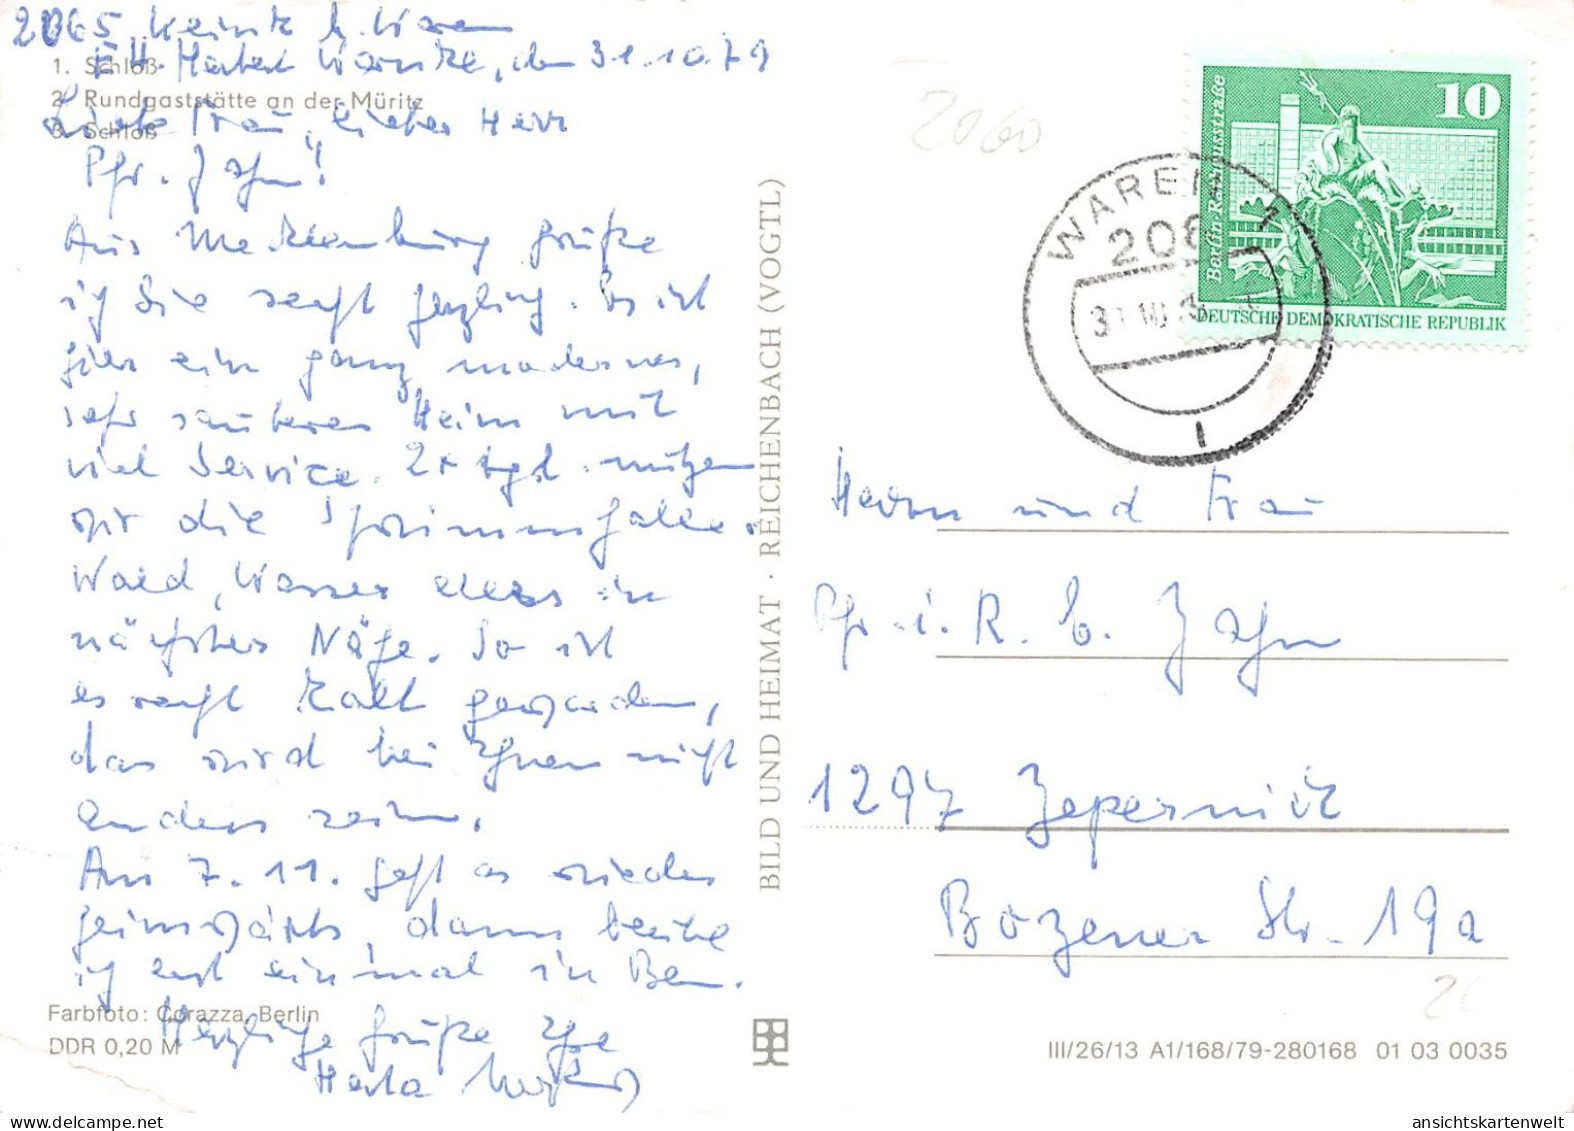 2065 Klink b. Waren
EH. Herbert Warnke, den 31.10.79
1. Schloß
2. Rundgaststätte an der Müritz
3. Schloß
Liebe Frau, lieber Herr
Pfr. Jahn!
Aus Mecklenburg grüße
ich Sie recht herzlich. Es ist
hier ein ganz modernes,
sehr sauberes Heim mit
viel Service. 2x tgl. nutzen
wir die Schwimmhalle.
Wald, Wasser alles in
nächster Nähe. So ist
es recht kalt geworden,
das wird bei Ihnen nicht
anders sein.
Am 7.11. geht es wieder
heimwärts, dann bleibe
ich erst einmal in Ben.
Herzliche Grüße Ihre
Herta
Farbfoto: Corazza, Berlin
DDR 0,20 M
BILD UND HEIMAT · REICHENBACH (VOGTL)
2060
WAREN 1
206
31.10.79
10
Berlin-Rathausstraße
DEUTSCHE DEMOKRATISCHE REPUBLIK
Herrn und Frau
Pfr. i. R. E. Jahn
1297 Zepernick
Bozener Str. 19a
III/26/13 A1/168/79-280168 01 03 0035
ansichtskartenwelt